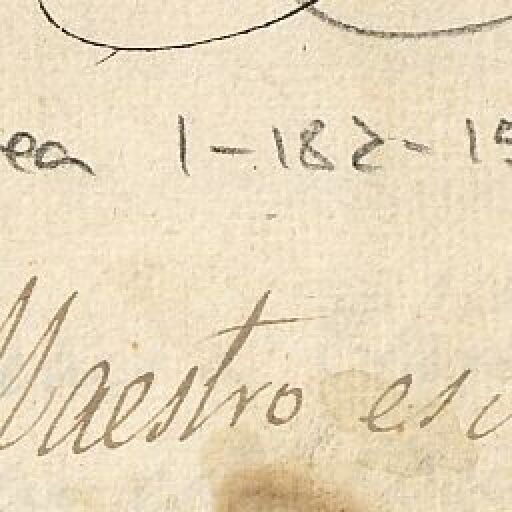 ea 1-182-15
Maestro es